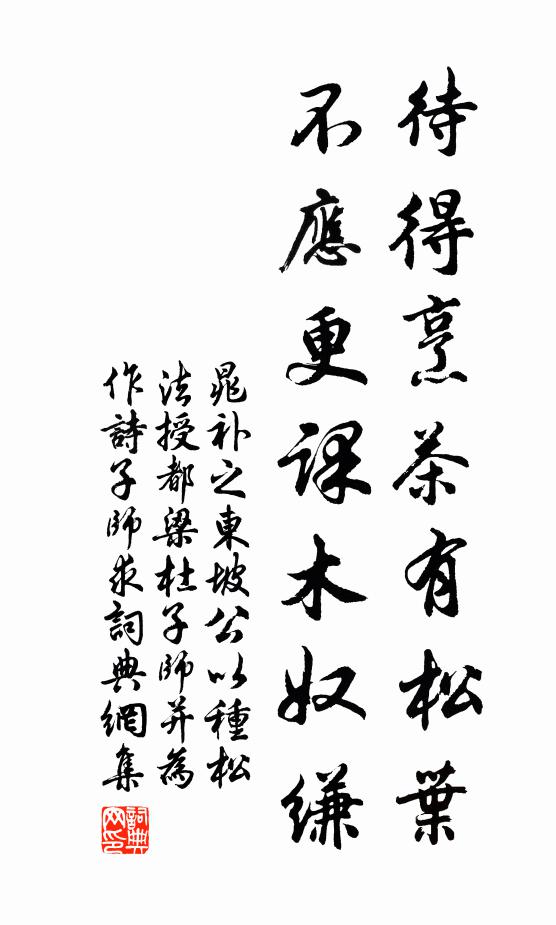 待得烹茶有松葉
不應更課木奴縑
晁补之東坡公以種松
法授都梁杜子師并為
作詩子師求詞典網集
詞典網印